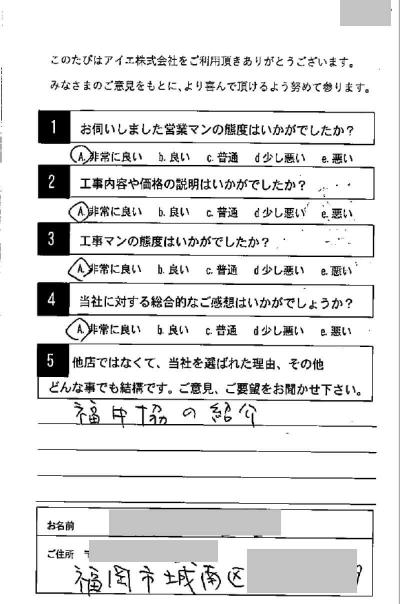 このたびはアイエ株式会社をご利用頂きありがとうございます。
みなさまのご意見をもとに、より喜んで頂けるよう努めて参ります。
1 お伺いしました営業マンの態度はいかがでしたか?
A.非常に良い b.良い c.普通 d少し悪い e.悪い
2 工事内容や価格の説明はいかがでしたか?
A.非常に良い b.良い c.普通 d少し悪い e.悪い
3 工事マンの態度はいかがでしたか?
A.非常に良い b.良い c.普通 d少し悪い e.悪い
4 当社に対する総合的なご感想はいかがでしょうか?
A.非常に良い b.良い c.普通 d少し悪い e.悪い
5 他店ではなくて、当社を選ばれた理由、その他
どんな事でも結構です。ご意見、ご要望をお聞かせ下さい。
福中協の紹介
お名前
ご住所 〒
福岡市城南区